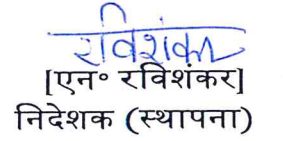 रविशंकर
[एन० रविशंकर]
निदेशक (स्थापना)